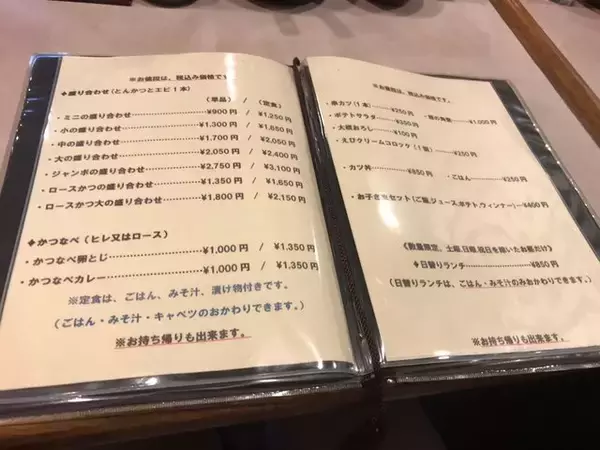 ※お値段は、税込み価格です
◆盛り合わせ(とんかつとエビ1本)
(単品) / (定食)
・ミニの盛り合わせ ¥900円 / ¥1,250円
・小の盛り合わせ ¥1,300円 / ¥1,650円
・中の盛り合わせ ¥1,700円 / ¥2,050円
・大の盛り合わせ ¥2,050円 / ¥2,400円
・ジャンボの盛り合わせ ¥2,750円 / ¥3,100円
・ロースかつの盛り合わせ ¥1,350円 / ¥1,650円
・ロースかつ大の盛り合わせ ¥1,800円 / ¥2,150円
◆かつなべ(ヒレ又はロース)
・かつなべ卵とじ ¥1,000円 / ¥1,350円
・かつなべカレー ¥1,000円 / ¥1,350円
※定食は、ごはん、みそ汁、漬け物付きです。
(ごはん・みそ汁・キャベツのおかわりができます。)
※お持ち帰りも出来ます。
※お値段は、税込み価格です。
・串カツ(1本) ¥250円
・ポテトサラダ ¥300円 ¥1,000円
・大根おろし ¥100円
・えびクリームコロッケ(1個) ¥250円
・カツ丼 ¥850円 ・ごはん ¥250円
・お子さまセット(ご飯、ジュース、ポテト、ウィンナー) ¥600円
《数量限定、土曜、日曜、祝日を除いたお昼だけ》
◆日替りランチ ¥850円
(日替りランチは、ごはん・みそ汁のみおかわりできます。)
※お持ち帰りも出来ます。